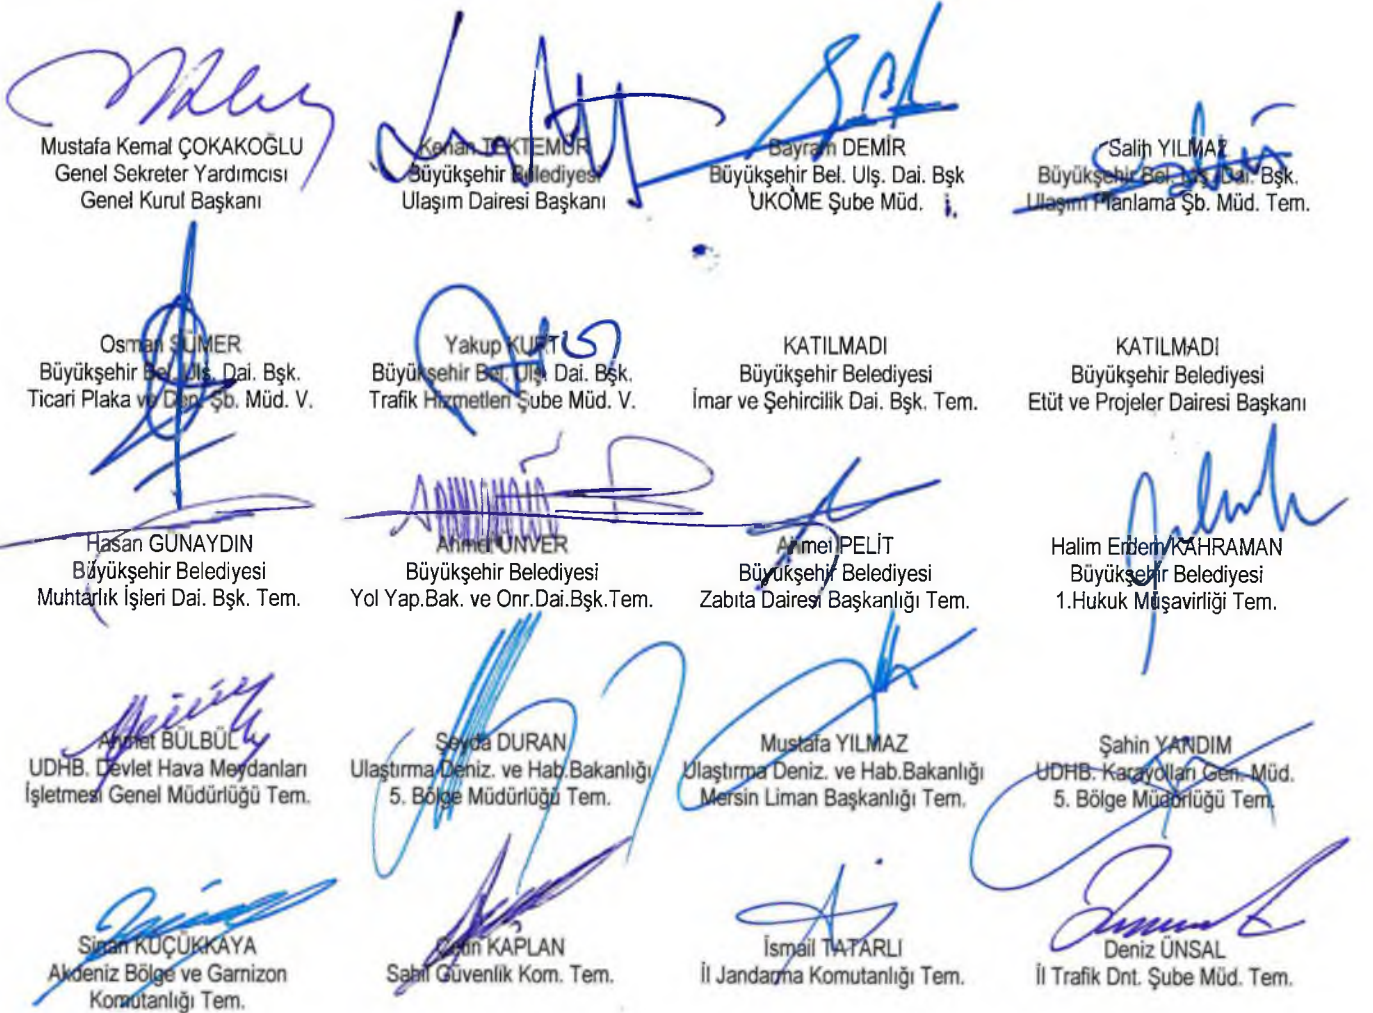 Mustafa Kemal ÇOKAKOĞLU
Genel Sekreter Yardımcısı
Genel Kurul Başkanı
Kenan TEKTEMUR
Büyükşehir Belediyesi
Ulaşım Dairesi Başkanı
Bayram DEMİR
Büyükşehir Bel. Ulş. Dai. Bşk
UKOME Şube Müd.
Salih YILMAZ
Büyükşehir Bel. Ulş. Dai. Bşk.
Ulaşım Planlama Şb. Müd. Tem.
Osman SÜMER
Büyükşehir Bel. Ulş. Dai. Bşk.
Ticari Plaka ve Den. Şb. Müd. V.
Yakup KURT
Büyükşehir Bel. Ulş. Dai. Bşk.
Trafik Hizmetleri Şube Müd. V.
KATILMADI
Büyükşehir Belediyesi
İmar ve Şehircilik Dai. Bşk. Tem.
KATILMADI
Büyükşehir Belediyesi
Etüt ve Projeler Dairesi Başkanı
Hasan GÜNAYDIN
Büyükşehir Belediyesi
Muhtarlık İşleri Dai. Bşk. Tem.
Ahmet ÜNVER
Büyükşehir Belediyesi
Yol Yap.Bak. ve Onr.Dai.Bşk.Tem.
Ahmet PELİT
Büyükşehir Belediyesi
Zabıta Dairesi Başkanlığı Tem.
Halim Erdem KAHRAMAN
Büyükşehir Belediyesi
1.Hukuk Müşavirliği Tem.
Ahmet BÜLBÜL
UDHB. Devlet Hava Meydanları
İşletmesi Genel Müdürlüğü Tem.
Seyda DURAN
Ulaştırma Deniz. ve Hab.Bakanlığı
5. Bölge Müdürlüğü Tem.
Mustafa YILMAZ
Ulaştırma Deniz. ve Hab.Bakanlığı
Mersin Liman Başkanlığı Tem.
Şahin YANDIM
UDHB. Karayolları Gen. Müd.
5. Bölge Müdürlüğü Tem.
Sinan KÜÇÜKKAYA
Akdeniz Bölge ve Garnizon
Komutanlığı Tem.
Çetin KAPLAN
Sahil Güvenlik Kom. Tem.
İsmail TATARLI
İl Jandarma Komutanlığı Tem.
Deniz ÜNSAL
İl Trafik Dnt. Şube Müd. Tem.